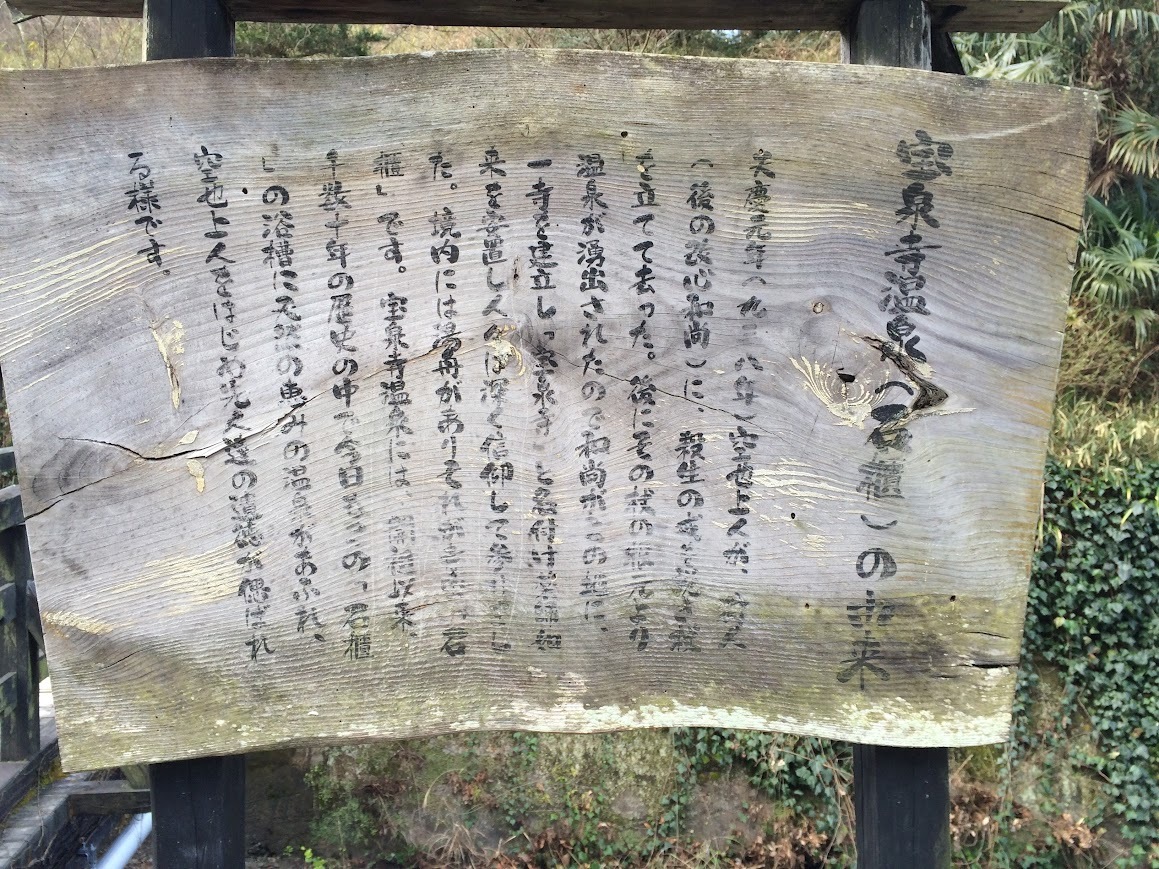 宝泉寺温泉（石櫃）の由来
天慶元年（九三八年）空也上人が、
（後の改心和尚）に、殺生の
を立てて去った。後にその杖の根元より
温泉が湧出されたので和尚がこの地に、
一寺を建立し「宝泉寺」と名付け
来を安置し人々は深く信仰して参
た。境内には湯舟がありそれが「石
櫃」です。宝泉寺温泉には、開湯以来、
千数十年の歴史の中で今日もこの「石櫃
」の浴槽に天然の恵みの温泉があふれ、
空也上人をはじめ先人達の遺徳が偲ばれ
る様です。